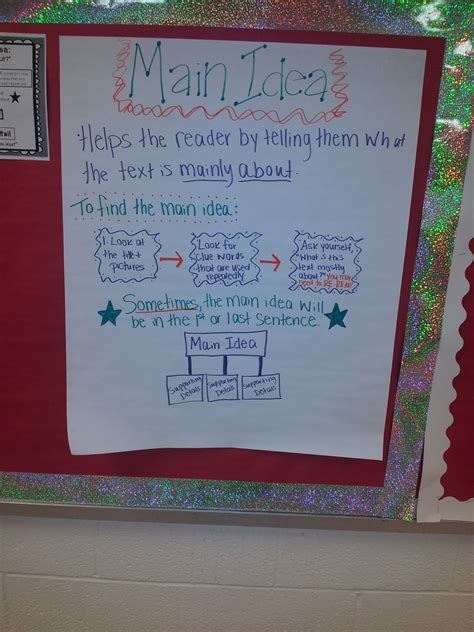 Main Idea
Helps the reader by telling them what
the text is mainly about.
To find the main idea:
1. Look at
the title +
pictures
Look for
clue words
that are used
repeatedly
Ask yourself,
"What is this
text mostly
about?" You may
need to RE-READ!
Sometimes, the main idea will
be in the 1st or last sentence.
Main Idea
Supporting
Details
Supporting
Details
Supporting
Details